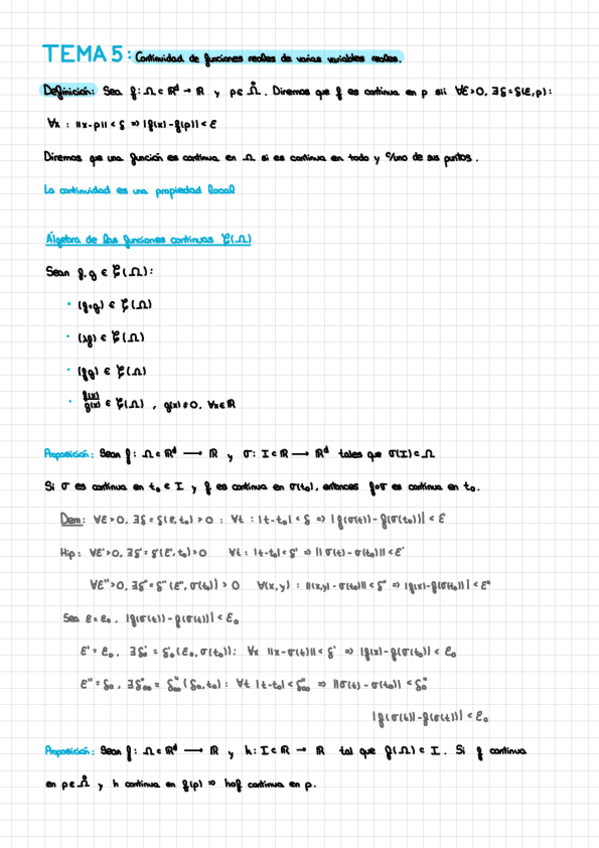 TEMA 5: Continuidad de funciones reales de varias variables reales.
Definición: Sea f: Ω ⊂ ℝᵈ → ℝ y p ∈ Ω̊. Diremos que f es continua en p sii ∀ε>0, ∃δ=δ(ε,p):
∀x : ||x-p|| < δ ⇒ |f(x)-f(p)| < ε
Diremos que una función es continua en Ω si es continua en todo y c/uno de sus puntos.
La continuidad es una propiedad local
Álgebra de las funciones continuas ℭ(Ω)
Sean f, g ∈ ℭ(Ω):
• (f+g) ∈ ℭ(Ω)
• (λf) ∈ ℭ(Ω)
• (fg) ∈ ℭ(Ω)
• f(x)/g(x) ∈ ℭ(Ω) , g(x) ≠ 0, ∀x∈ℝ
Proposición: Sean f: Ω ⊂ ℝᵈ ⟶ ℝ y σ: I ⊂ ℝ ⟶ ℝᵈ tales que σ(I) ⊂ Ω
Si σ es continua en t₀ ∈ I y f es continua en σ(t₀), entonces f∘σ es continua en t₀.
Dem: ∀ε>0, ∃δ=δ(ε,t₀)>0 : ∀t : |t-t₀| < δ ⇒ |f(σ(t))-f(σ(t₀))| < ε
Hip: ∀ε'>0, ∃δ'=δ'(ε',t₀)>0 ∀t : |t-t₀| < δ' ⇒ ||σ(t)-σ(t₀)|| < ε'
∀ε''>0, ∃δ''=δ''(ε'',σ(t₀))>0 ∀(x,y) : ||(x,y)-σ(t₀)|| < δ'' ⇒ |f(x)-f(σ(t₀))| < ε''
Sea ε=ε₀, |f(σ(t))-f(σ(t₀))| < ε₀
ε'=ε₀, ∃δ₀'=δ₀'(ε₀,σ(t₀)): ∀x ||x-σ(t)|| < δ' ⇒ |f(x)-f(σ(t₀))| < ε₀
ε''=δ₀, ∃δ₀₀''=δ₀₀''(δ₀,t₀) : ∀t |t-t₀| < δ₀₀'' ⇒ ||σ(t)-σ(t₀)|| < δ₀''
|f(σ(t))-f(σ(t₀))| < ε₀
Proposición: Sean f: Ω ⊂ ℝᵈ ⟶ ℝ y h: I ⊂ ℝ → ℝ tal que f(Ω) ⊂ I. Si f continua
en p ∈ Ω̊ y h continua en f(p) ⇒ h∘f continua en p.